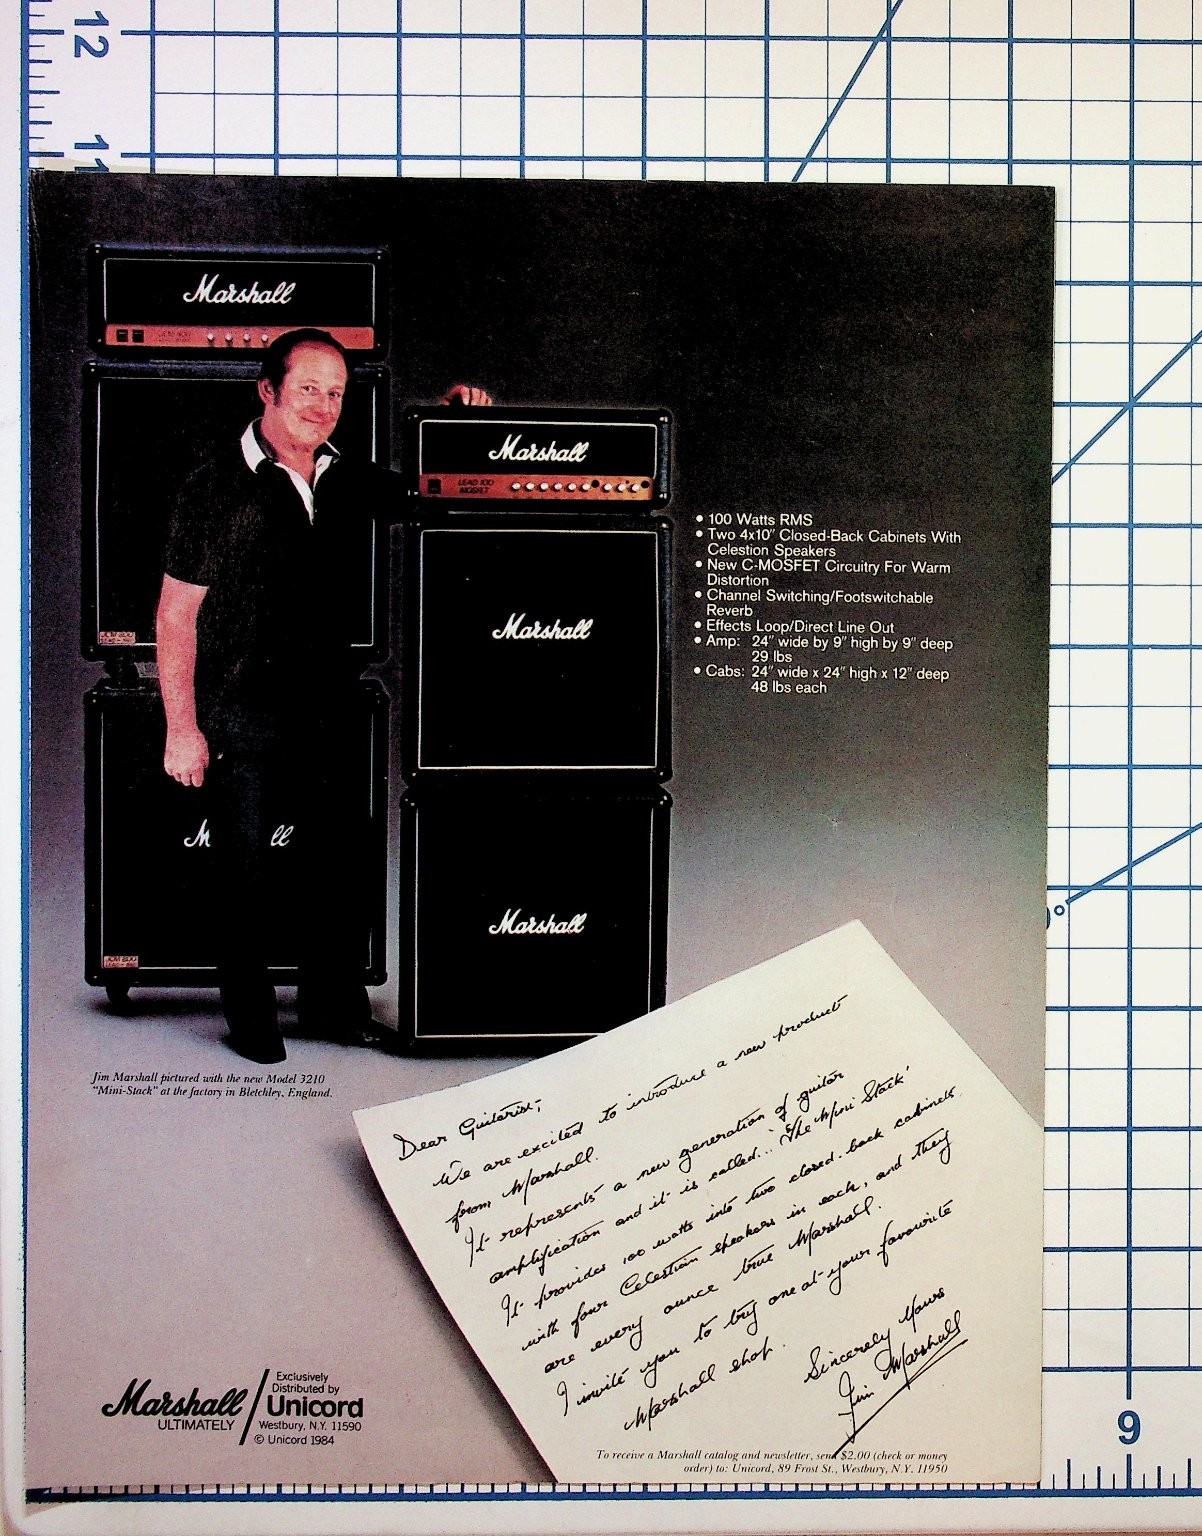 12
11
Marshall
JCM 800
Marshall
LEAD 100
MOSFET
Marshall
JCM 800
LEAD-960
M ll
Marshall
JCM 800
LEAD-960
• 100 Watts RMS
• Two 4x10" Closed-Back Cabinets With
Celestion Speakers
• New C-MOSFET Circuitry For Warm
Distortion
• Channel Switching/Footswitchable
Reverb
• Effects Loop/Direct Line Out
• Amp: 24" wide by 9" high by 9" deep
29 lbs
• Cabs: 24" wide x 24" high x 12" deep
48 lbs each
Jim Marshall pictured with the new Model 3210
"Mini-Stack" at the factory in Bletchley, England.
Dear Guitarist,
We are excited to introduce a new product
from Marshall.
It represents a new generation of guitar
amplification and it is called... 'The Mini Stack'
It provides 100 watts into two closed-back cabinets
with four Celestion speakers in each, and they
are every ounce true Marshall.
I invite you to try one at your favourite
Marshall shop.
Sincerely Yours
Jim Marshall
Marshall
ULTIMATELY
Exclusively
Distributed by
Unicord
Westbury, N.Y. 11590
© Unicord 1984
To receive a Marshall catalog and newsletter, send $2.00 (check or money
order) to: Unicord, 89 Frost St., Westbury, N.Y. 11950
9